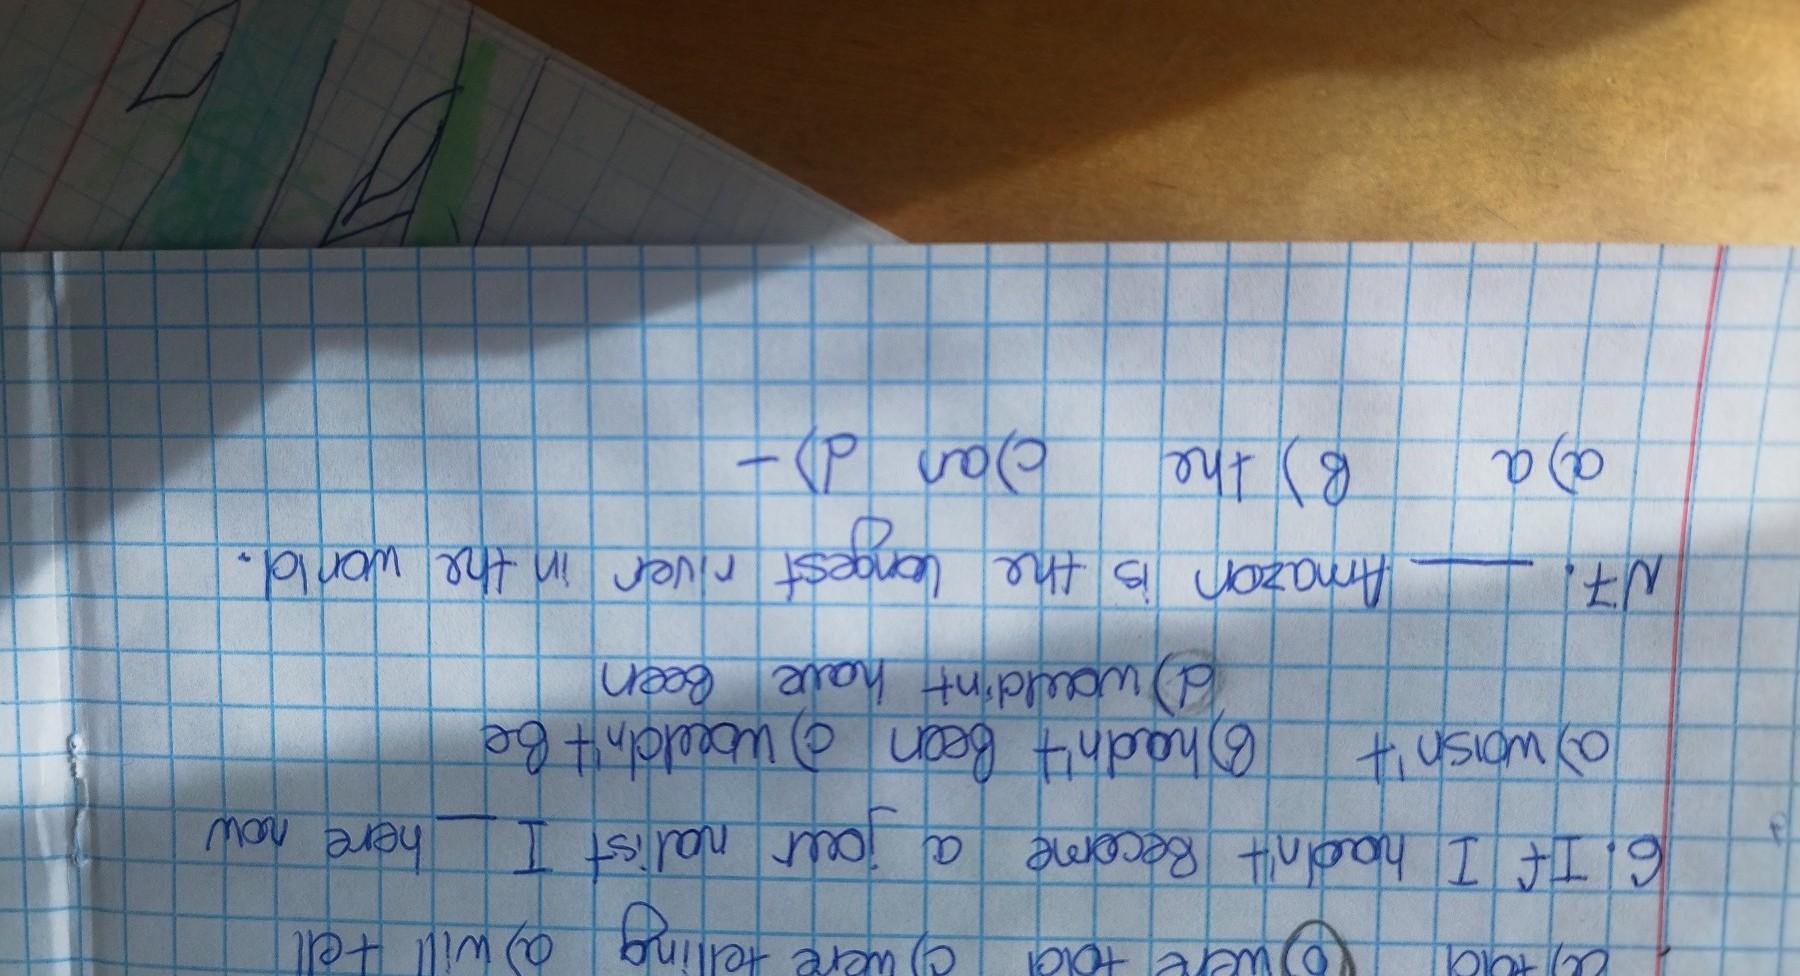 a) told b) were told c) were telling d) will tell
6. If I hadn't become a jour nalist I — here now
a) wasn't b) hadn't been c) wouldn't be
d) wouldn't have been
N7. — Amazon is the longest river in the world.
a) a b) the c) an d) –